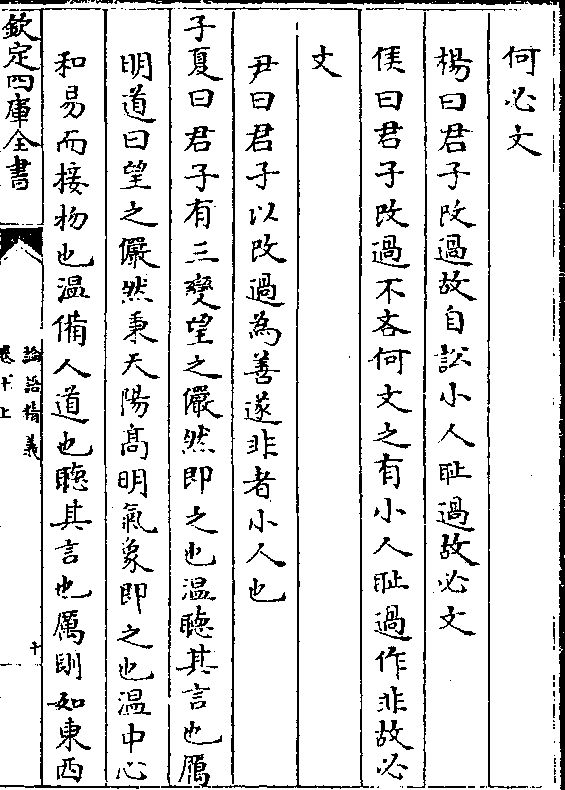 何必文
楊曰君子改過故自訟小人恥過故必文
侯曰君子改過不吝何文之有小人恥過作非故必
文
尹曰君子以改過為善遂非者小人也
子夏曰君子有三變望之儼然即之也温聽其言也厲
明道曰望之儼然秉天陽髙明氣象即之也温中心
和易而接物也温備人道也聽其言也厲則如東西
欽定四庫全書
論語精義
卷十上
十